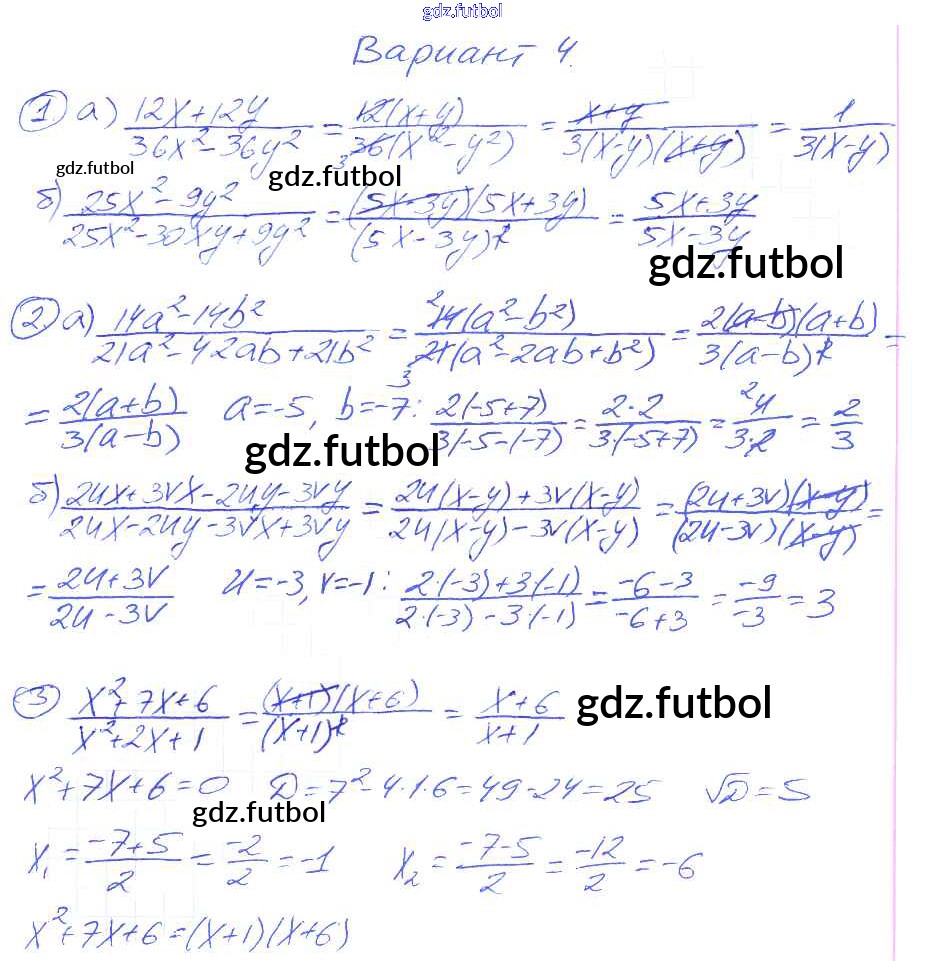 gdz.futbol
Вариант 4.
1. а) (12x+12y)/(36x²-36y²) = 12(x+y)/36(x²-y²) 3 = (x+y)/3(x-y)(x+y) = 1/3(x-y)
gdz.futbol gdz.futbol
б) (25x²-9y²)/(25x²-30xy+9y²) = (5x-3y)(5x+3y)/(5x-3y)² = (5x+3y)/(5x-3y)
gdz.futbol
2. а) (14a²-14b²)/(21a²-42ab+21b²) = 2 14(a²-b²)/21(a²-2ab+b²) 3 = 2(a-b)(a+b)/3(a-b)² =
= 2(a+b)/3(a-b) a=-5, b=-7: 2(-5+7)/3(-5-(-7) = 2·2/3·(-5+7) = 2 4/3·2 = 2/3
gdz.futbol
б) (2ux+3vx-2uy-3vy)/(2ux-2uy-3vx+3vy) = (2u(x-y)+3v(x-y))/(2u(x-y)-3v(x-y)) = (2u+3v)(x-y)/(2u-3v)(x-y) =
= (2u+3v)/(2u-3v) u=-3, v=-1: (2·(-3)+3(-1))/(2·(-3)-3·(-1)) = (-6-3)/(-6+3) = -9/-3 = 3
3 (x²+7x+6)/(x²+2x+1) = (x+1)(x+6)/(x+1)² = (x+6)/(x+1) gdz.futbol
x²+7x+6=0 D=7²-4·1·6=49-24=25 √D=5
gdz.futbol
x₁ = (-7+5)/2 = -2/2 = -1 x₂ = (-7-5)/2 = -12/2 = -6
x²+7x+6=(x+1)(x+6)